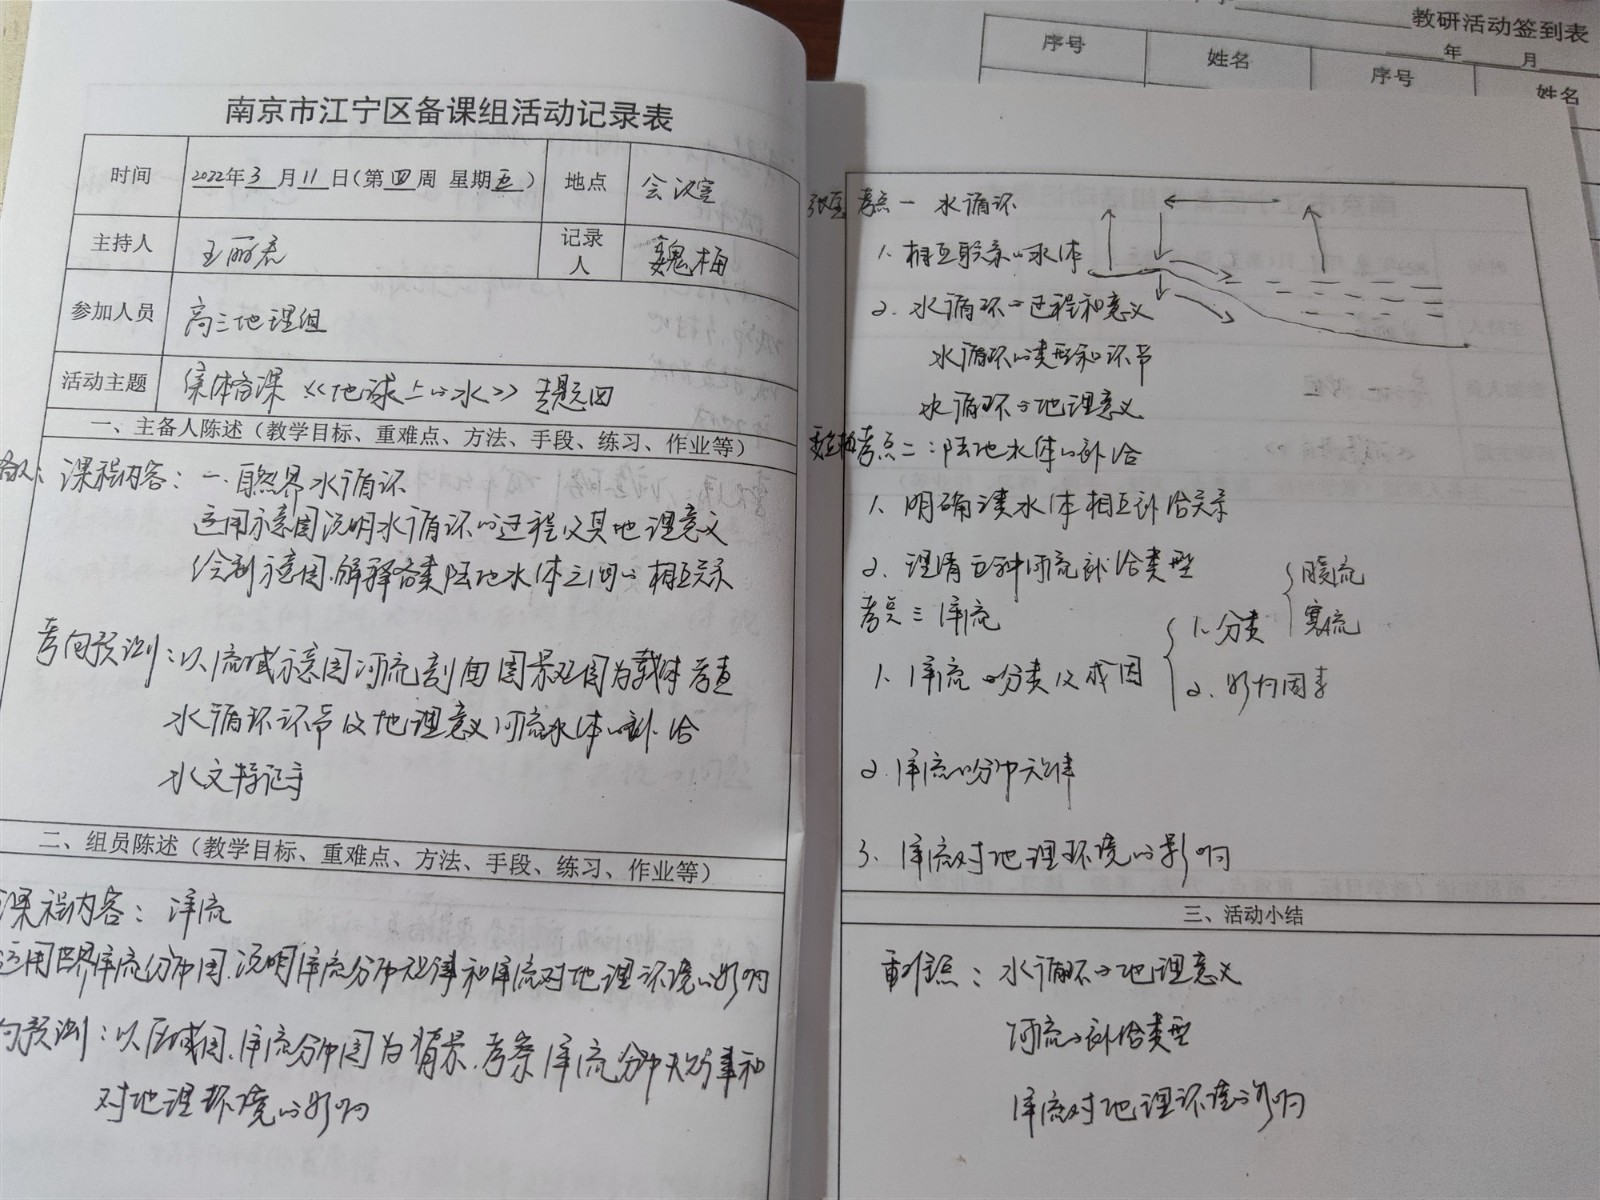 南京市江宁区备课组活动记录表
时间 2022年3月11日(第四周 星期五) 地点 会议室
主持人 王丽君 记录人 魏梅
参加人员 高三地理组
活动主题 集体备课《地球上的水》专题四
一、主备人陈述（教学目标、重难点、方法、手段、练习、作业等）
课程内容：一.自然界水循环
运用示意图说明水循环的过程及其地理意义
绘制示意图.解释各类陆地水体之间的相互关系
考向预测：以流域示意图河流剖面图景观图为载体考查
水循环环节及地理意义河流水体的补给
水文特征
二、组员陈述（教学目标、重难点、方法、手段、练习、作业等）
课程内容：洋流
运用世界洋流分布图.说明洋流分布规律和洋流对地理环境的影响
向预测：以区域图.洋流分布图为背景.考察洋流分布规律和
对地理环境的影响
教研活动签到表
年 月
序号 姓名 序号 姓名
考点一 水循环
1.相互联系的水体
2.水循环的过程和意义
水循环的类型和环节
水循环的地理意义
考点二：陆地水体的补给
1.明确读水体相互补给关系
2.理清五种河流补给类型
考点三 洋流
1.洋流的分类及成因
1.分类
暖流
寒流
2.影响因素
2.洋流的分布规律
3.洋流对地理环境的影响
三、活动小结
重难点：水循环的地理意义
河流的补给类型
洋流对地理环境的影响